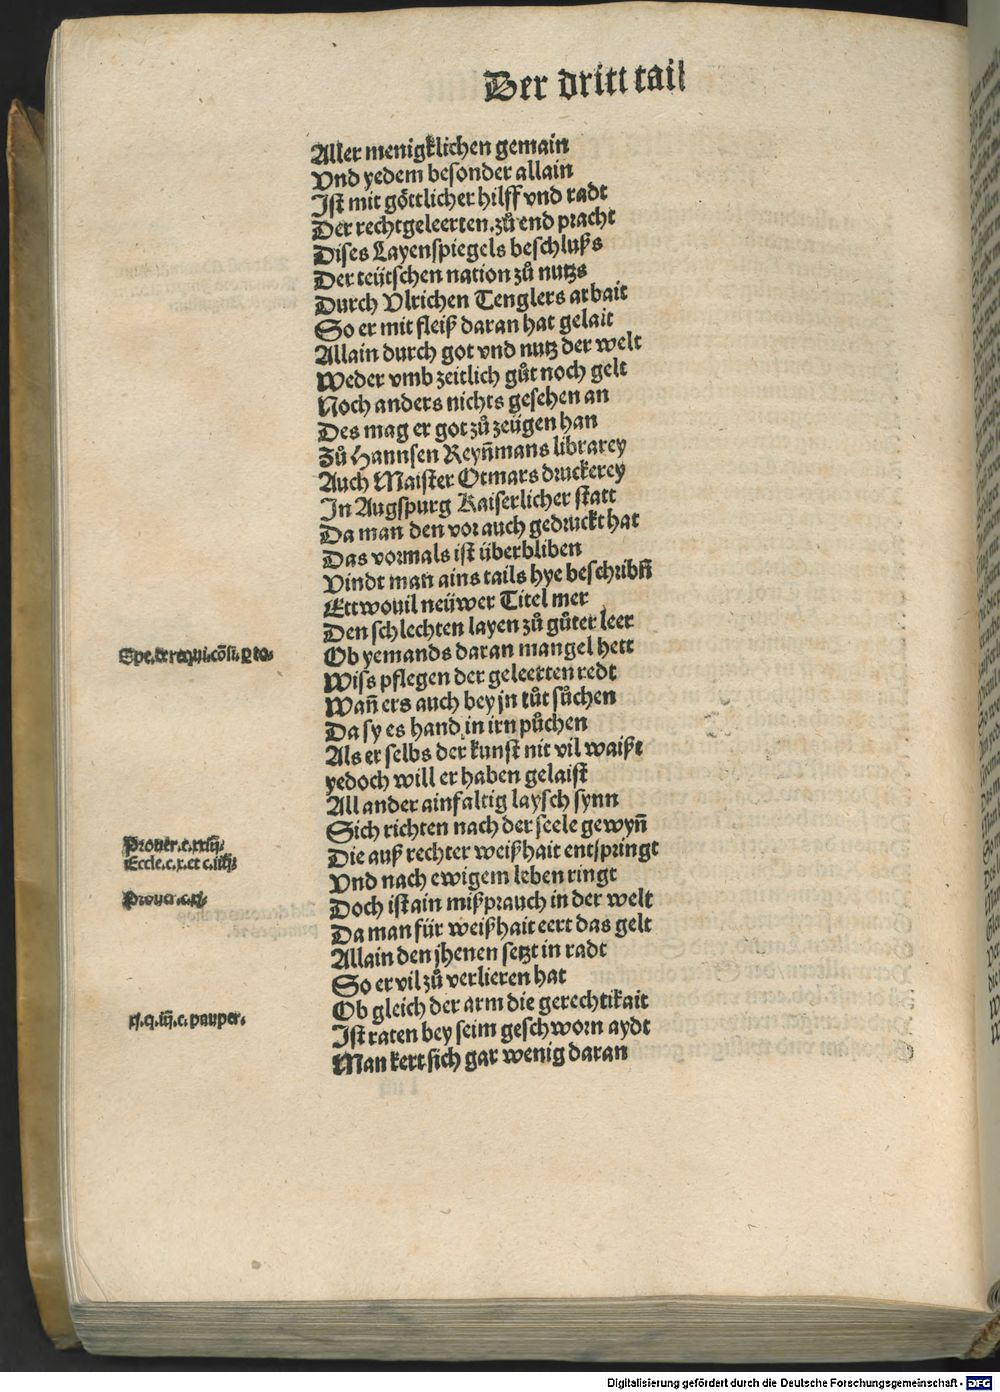 Der dritt tail
Aller menigklichen gemain
Vnd yedem besonder allain
Ist mit göttlicher hilff vnd radt
Der rechtgeleerten.zů end pracht
Dises Layenspiegels beschluss
Der teütschen nation zů nutzs
Durch Vlrichen Tenglers arbait
So er mit fleiß daran hat gelait
Allain durch got vnd nutz der welt
Weder vmb zeitlich gůt noch gelt
Noch anders nichts gesehen an
Des mag er got zů zeügen han
Zů Hannsen Reyn̄mans librarey
Auch Maister Otmars druckerey
In Augspurg Kaiserlicher statt
Da man den vor auch gedruckt hat
Das vormals ist überbliben
Vindt man ains tails hye beschribn̄
Ettwouil neüwer Titel mer
Den schlechten layen zů gůter leer
Spe. de requi. cōsi. ꝑ to.
Ob yemands daran mangel hett
Wiss pflegen der geleerten redt
Wan̄ ers auch bey jn tůt sůchen
Da sy es hand in irn půchen
Als er selbs der kunst nit vil waißt
yedoch will er haben gelaist
All ander ainfaltig laysch synn
Sich richten nach der seele gewyn̄
Prouer. c.
Die auß rechter weißhait entspringt
Eccle. c. x. et c.
Vnd nach ewigem leben ringt
Prouer. c.
Doch ist ain mißprauch in der welt
Da man für weißhait eert das gelt
Allain den jhenen setzt in radt
So er vil zů verlieren hat
Ob gleich der arm die gerechtikait
xj. q. iij. c. pauper.
Ist raten bey seim geschworn aydt
Man kert sich gar wenig daran
Digitalisierung gefördert durch die Deutsche Forschungsgemeinschaft - DFG